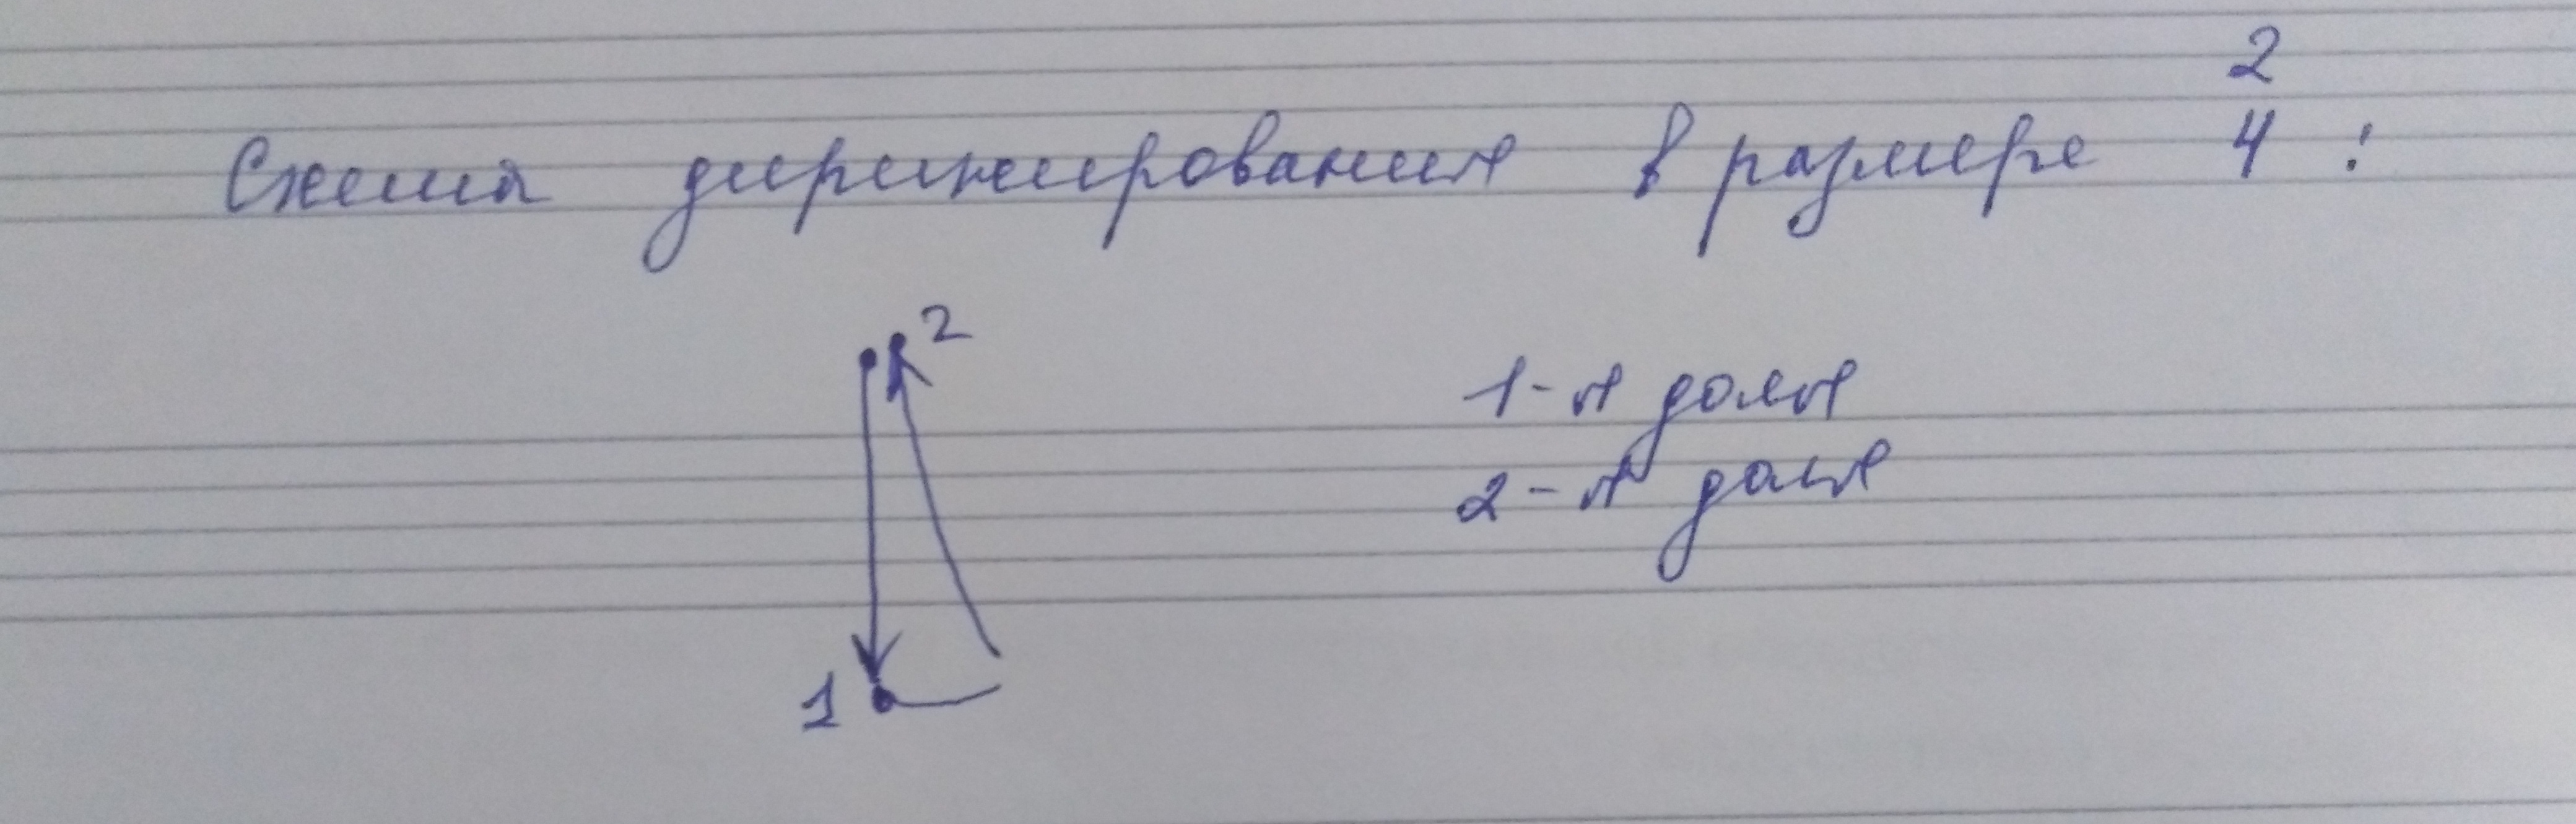 Схема дирижирования в размере 2
4 :
2
1-я доля
2-я доля
1